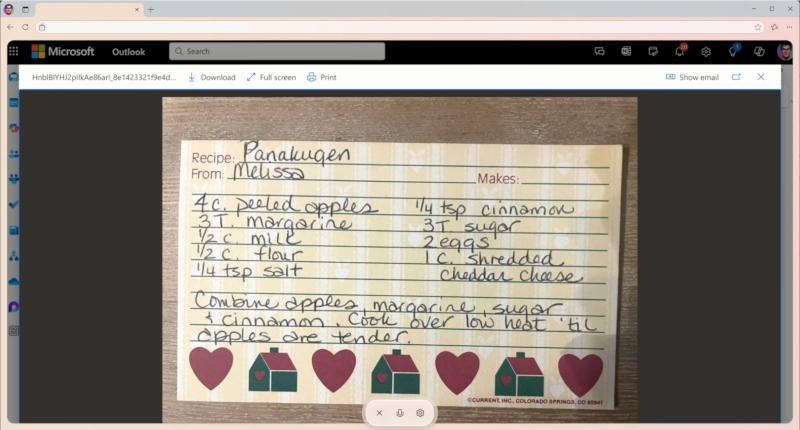 Microsoft Outlook Search 20
HnblBlYHJ2pIlkAe86arl_8e1423321f9e4d... Download Full screen Print Show email
Recipe: Panakugen
From: Melissa Makes:
4 c. peeled apples
3 T. margarine
1/2 c. milk
1/2 c. flour
1/4 tsp salt
1/4 tsp cinnamon
3 T. sugar
2 eggs
1 c. shredded
cheddar cheese
Combine apples, margarine, sugar
& cinnamon. Cook over low heat 'til
apples are tender.
©CURRENT, INC., COLORADO SPRINGS, CO 80941